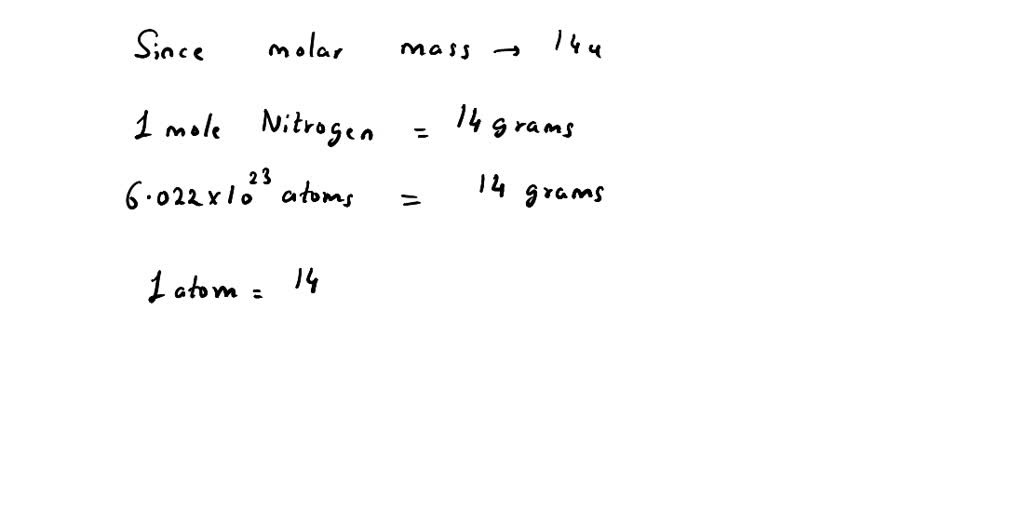 Since molar mass → 14u
1 mole Nitrogen = 14 grams
6.022×10²³ atoms = 14 grams
1 atom = 14